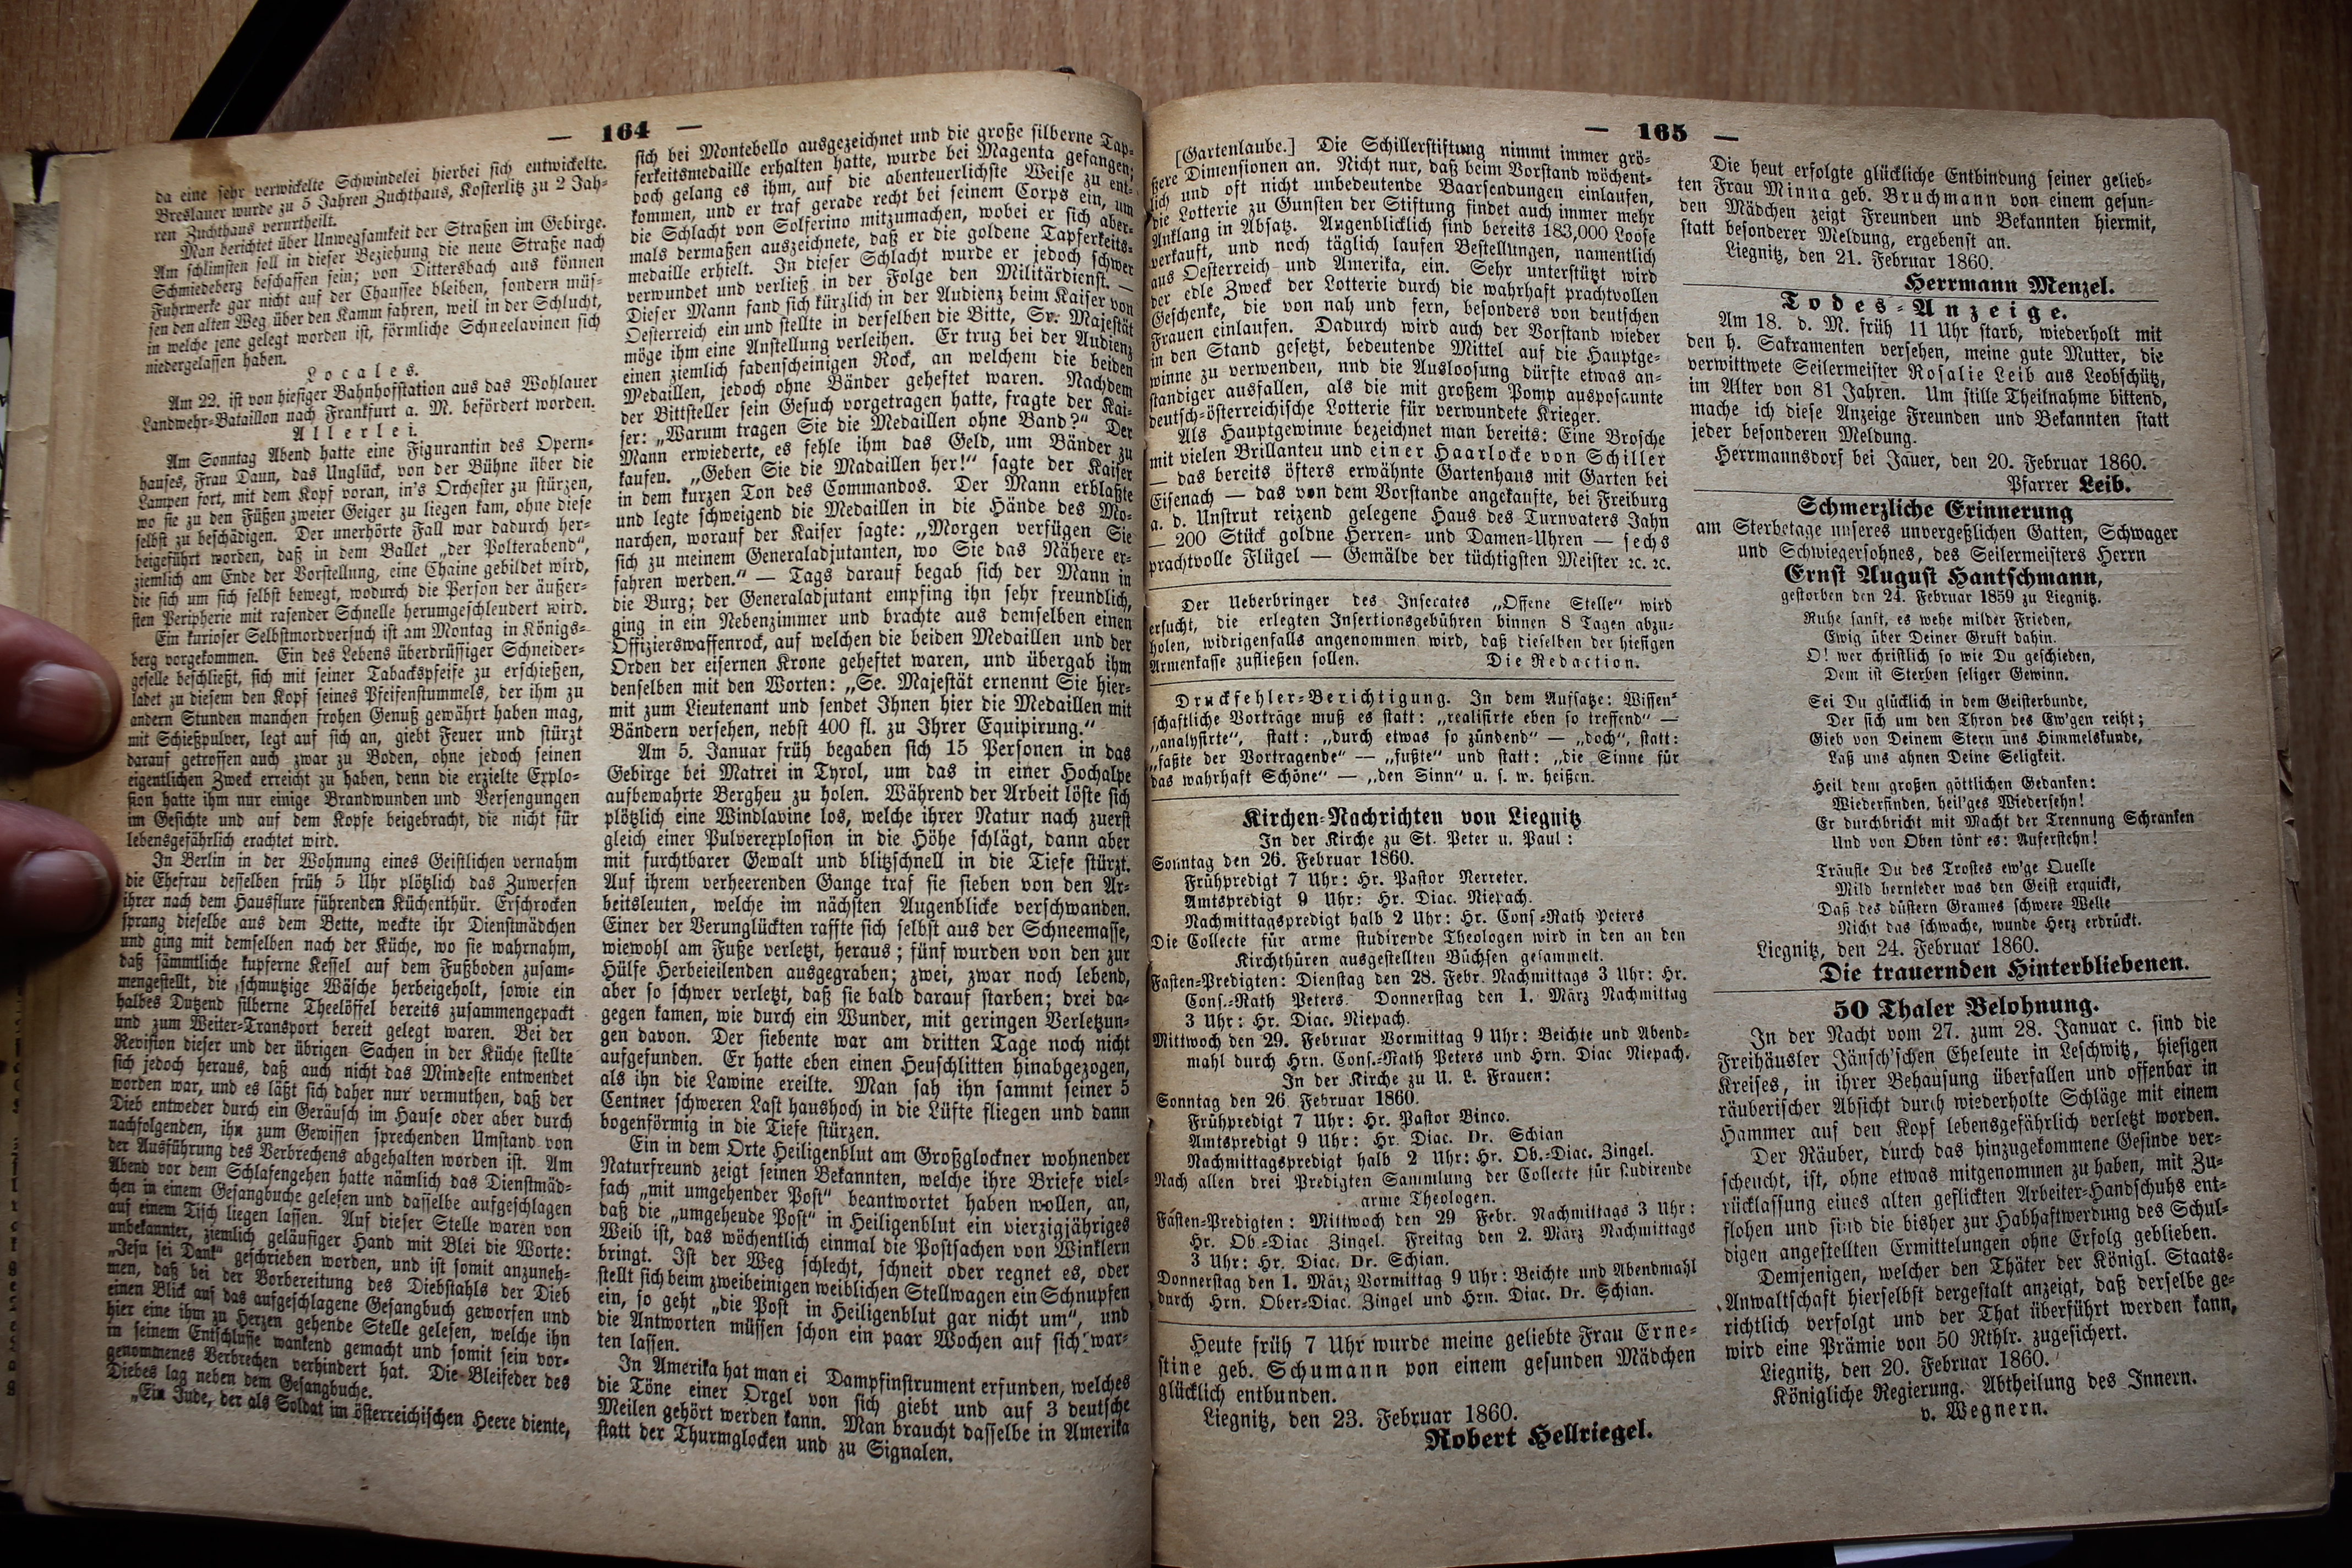 — 164 —
da eine sehr verwickelte Schwindelei hierbei sich entwickelte.
Breslauer wurde zu 5 Jahren Zuchthaus, Kosterlitz zu 2 Jah-
ren Zuchthaus verurtheilt.
Man berichtet über Unwegsamkeit der Straßen im Gebirge.
Am schlimsten soll in dieser Beziehung die neue Straße nach
Schmiedeberg beschaffen sein; von Dittersbach aus können
Fuhrwerke gar nicht auf der Chaussee bleiben, sondern müs-
sen den alten Weg über den Kamm fahren, weil in der Schlucht,
in welche jene gelegt worden ist, förmliche Schneelavinen sich
niedergelassen haben.
Locales.
Am 22. ist von hiesiger Bahnhofsstation aus das Wohlauer
Landwehr-Bataillon nach Frankfurt a. M. befördert worden.
Allerlei.
Am Sonntag Abend hatte eine Figurantin des Opern-
hauses, Frau Daun, das Unglück, von der Bühne über die
Lampen fort, mit dem Kopf voran, in's Orchester zu stürzen,
wo sie zu den Füßen zweier Geiger zu liegen kam, ohne diese
selbst zu beschädigen. Der unerhörte Fall war dadurch her-
beigeführt worden, daß in dem Ballet „der Polterabend“,
ziemlich am Ende der Vorstellung, eine Chaine gebildet wird,
die sich um sich selbst bewegt, wodurch die Person der äußer-
sten Peripherie mit rasender Schnelle herumgeschleudert wird.
Ein kurioser Selbstmordversuch ist am Montag in Königs-
berg vorgekommen. Ein des Lebens überdrüssiger Schneider-
geselle beschließt, sich mit seiner Tabackspfeife zu erschießen,
ladet zu diesem den Kopf seines Pfeifenstummels, der ihm zu
andern Stunden manchen frohen Genuß gewährt haben mag,
mit Schießpulver, legt auf sich an, giebt Feuer und stürzt
darauf getroffen auch zwar zu Boden, ohne jedoch seinen
eigentlichen Zweck erreicht zu haben, denn die erzielte Explo-
sion hatte ihm nur einige Brandwunden und Versengungen
im Gesichte und auf dem Kopfe beigebracht, die nicht für
lebensgefährlich erachtet wird.
In Berlin in der Wohnung eines Geistlichen vernahm
die Ehefrau desselben früh 5 Uhr plötzlich das Zuwerfen
ihrer nach dem Hausflure führenden Küchenthür. Erschrocken
sprang dieselbe aus dem Bette, weckte ihr Dienstmädchen
und ging mit demselben nach der Küche, wo sie wahrnahm,
daß sämmtliche kupferne Kessel auf dem Fußboden zusam-
mengestellt, die schmutzige Wäsche herbeigeholt, sowie ein
halbes Dutzend silberne Theelöffel bereits zusammengepackt
und zum Weiter-Transport bereit gelegt waren. Bei der
Revision dieser und der übrigen Sachen in der Küche stellte
sich jedoch heraus, daß auch nicht das Mindeste entwendet
worden war, und es läßt sich daher nur vermuthen, daß der
Dieb entweder durch ein Geräusch im Hause oder aber durch
nachfolgenden, ihn zum Gewissen sprechenden Umstand von
der Ausführung des Verbrechens abgehalten worden ist. Am
Abend vor dem Schlafengehen hatte nämlich das Dienstmäd-
chen in einem Gesangbuche gelesen und dasselbe aufgeschlagen
auf einem Tisch liegen lassen. Auf dieser Stelle waren von
unbekannter, ziemlich geläufiger Hand mit Blei die Worte:
„Jesu sei Dank“ geschrieben worden, und ist somit anzuneh-
men, daß bei der Vorbereitung des Diebstahls der Dieb
einen Blick auf das aufgeschlagene Gesangbuch geworfen und
hier eine ihm zu Herzen gehende Stelle gelesen, welche ihn
in seinem Entschlusse wankend gemacht und somit sein vor-
genommenes Verbrechen verhindert hat. Die Bleifeder des
Diebes lag neben dem Gesangbuche.
„Ein Jude, der als Soldat im österreichischen Heere diente,
sich bei Montebello ausgezeichnet und die große silberne Tap-
ferkeitsmedaille erhalten hatte, wurde bei Magenta gefangen;
doch gelang es ihm, auf die abenteuerlichste Weise zu ent-
kommen, und er traf gerade recht bei seinem Corps ein, um
die Schlacht von Solferino mitzumachen, wobei er sich aber-
mals dermaßen auszeichnete, daß er die goldene Tapferkeits-
medaille erhielt. In dieser Schlacht wurde er jedoch schwer
verwundet und verließ in der Folge den Militärdienst. —
Dieser Mann fand sich kürzlich in der Audienz beim Kaiser von
Oesterreich ein und stellte in derselben die Bitte, Sr. Majestät
möge ihm eine Anstellung verleihen. Er trug bei der Audienz
einen ziemlich fadenscheinigen Rock, an welchem die beiden
Medaillen, jedoch ohne Bänder geheftet waren. Nachdem
der Bittsteller sein Gesuch vorgetragen hatte, fragte der Kai-
ser: „Warum tragen Sie die Medaillen ohne Band?“ Der
Mann erwiederte, es fehle ihm das Geld, um Bänder zu
kaufen. „Geben Sie die Madaillen her!“ sagte der Kaiser
in dem kurzen Ton des Commandos. Der Mann erblaßte
und legte schweigend die Medaillen in die Hände des Mo-
narchen, worauf der Kaiser sagte: „Morgen verfügen Sie
sich zu meinem Generaladjutanten, wo Sie das Nähere er-
fahren werden.“ — Tags darauf begab sich der Mann in
die Burg; der Generaladjutant empfing ihn sehr freundlich,
ging in ein Nebenzimmer und brachte aus demselben einen
Offizierswaffenrock, auf welchen die beiden Medaillen und der
Orden der eisernen Krone geheftet waren, und übergab ihm
denselben mit den Worten: „Se. Majestät ernennt Sie hier-
mit zum Lieutenant und sendet Ihnen hier die Medaillen mit
Bändern versehen, nebst 400 fl. zu Ihrer Equipirung.“
Am 5. Januar früh begaben sich 15 Personen in das
Gebirge bei Matrei in Tyrol, um das in einer Hochalpe
aufbewahrte Bergheu zu holen. Während der Arbeit löste sich
plötzlich eine Windlavine los, welche ihrer Natur nach zuerst
gleich einer Pulverexplosion in die Höhe schlägt, dann aber
mit furchtbarer Gewalt und blitzschnell in die Tiefe stürzt.
Auf ihrem verheerenden Gange traf sie sieben von den Ar-
beitsleuten, welche im nächsten Augenblicke verschwanden.
Einer der Verunglückten raffte sich selbst aus der Schneemasse,
wiewohl am Fuße verletzt, heraus; fünf wurden von den zur
Hülfe Herbeieilenden ausgegraben; zwei, zwar noch lebend,
aber so schwer verletzt, daß sie bald darauf starben; drei da-
gegen kamen, wie durch ein Wunder, mit geringen Verletzun-
gen davon. Der siebente war am dritten Tage noch nicht
aufgefunden. Er hatte eben einen Heuschlitten hinabgezogen,
als ihn die Lawine ereilte. Man sah ihn sammt seiner 5
Centner schweren Last haushoch in die Lüfte fliegen und dann
bogenförmig in die Tiefe stürzen.
Ein in dem Orte Heiligenblut am Großglockner wohnender
Naturfreund zeigt seinen Bekannten, welche ihre Briefe viel-
fach „mit umgehender Post“ beantwortet haben wollen, an,
daß die „umgehende Post“ in Heiligenblut ein vierzigjähriges
Weib ist, das wöchentlich einmal die Postsachen von Winklern
bringt. Ist der Weg schlecht, schneit oder regnet es, oder
stellt sich beim zweibeinigen weiblichen Stellwagen ein Schnupfen
ein, so geht „die Post in Heiligenblut gar nicht um“, und
die Antworten müssen schon ein paar Wochen auf sich war-
ten lassen.
In Amerika hat man ei Dampfinstrument erfunden, welches
die Töne einer Orgel von sich giebt und auf 3 deutsche
Meilen gehört werden kann. Man braucht dasselbe in Amerika
statt der Thurmglocken und zu Signalen.
— 165 —
[Gartenlaube.] Die Schillerstiftung nimmt immer grö-
ßere Dimensionen an. Nicht nur, daß beim Vorstand wöchent-
lich und oft nicht unbedeutende Baarsendungen einlaufen,
die Lotterie zu Gunsten der Stiftung findet auch immer mehr
Anklang in Absatz. Augenblicklich sind bereits 183,000 Loose
verkauft, und noch täglich laufen Bestellungen, namentlich
aus Oesterreich und Amerika, ein. Sehr unterstützt wird
der edle Zweck der Lotterie durch die wahrhaft prachtvollen
Geschenke, die von nah und fern, besonders von deutschen
Frauen einlaufen. Dadurch wird auch der Vorstand wieder
in den Stand gesetzt, bedeutende Mittel auf die Hauptge-
winne zu verwenden, nnd die Ausloosung dürfte etwas an-
ständiger ausfallen, als die mit großem Pomp ausposaunte
deutsch-österreichische Lotterie für verwundete Krieger.
Als Hauptgewinne bezeichnet man bereits: Eine Brosche
mit vielen Brillanteu und einer Haarlocke von Schiller
— das bereits öfters erwähnte Gartenhaus mit Garten bei
Eisenach — das von dem Vorstande angekaufte, bei Freiburg
a. d. Unstrut reizend gelegene Haus des Turnvaters Jahn
— 200 Stück goldne Herren- und Damen-Uhren — sechs
prachtvolle Flügel — Gemälde der tüchtigsten Meister ꝛc. ꝛc.
Der Ueberbringer des Insecates „Offene Stelle“ wird
ersucht, die erlegten Insertionsgebühren binnen 8 Tagen abzu-
holen, widrigenfalls angenommen wird, daß dieselben der hiesigen
Armenkasse zufließen sollen. Die Redaction.
Druckfehler-Berichtigung. In dem Aufsatze: Wissen-
schaftliche Vorträge muß es statt: „realisirte eben so treffend“ —
„analysirte“, statt: „durch etwas so zündend“ — „doch“, statt:
„faßte der Vortragende“ — „fußte“ und statt: „die Sinne für
das wahrhaft Schöne“ — „den Sinn“ u. s. w. heißen.
Kirchen-Nachrichten von Liegnitz
In der Kirche zu St. Peter u. Paul:
Sonntag den 26. Februar 1860.
Frühpredigt 7 Uhr: Hr. Pastor Nerreter.
Amtspredigt 9 Uhr: Hr. Diac. Niepach.
Nachmittagspredigt halb 2 Uhr: Hr. Cons-Rath Peters
Die Collecte für arme studirende Theologen wird in den an den
Kirchthüren ausgestellten Büchsen gesammelt.
Fasten-Predigten: Dienstag den 28. Febr. Nachmittags 3 Uhr: Hr.
Cons.-Rath Peters. Donnerstag den 1. März Nachmittag
3 Uhr: Hr. Diac. Niepach.
Mittwoch den 29. Februar Vormittag 9 Uhr: Beichte und Abend-
mahl durch Hrn. Cons.-Rath Peters und Hrn. Diac Niepach.
In der Kirche zu U. L. Frauen:
Sonntag den 26 Februar 1860.
Frühpredigt 7 Uhr: Hr. Pastor Binco.
Amtspredigt 9 Uhr: Hr. Diac. Dr. Schian
Nachmittagspredigt halb 2 Uhr: Hr. Ob.-Diac. Zingel.
Nach allen drei Predigten Sammlung der Collecte für studirende
arme Theologen.
Fasten-Predigten: Mittwoch den 29 Febr. Nachmittags 3 Uhr:
Hr. Ob.-Diac Zingel. Freitag den 2. März Nachmittags
3 Uhr: Hr. Diac. Dr. Schian.
Donnerstag den 1. März Vormittag 9 Uhr: Beichte und Abendmahl
durch Hrn. Ober-Diac. Zingel und Hrn. Diac. Dr. Schian.
Heute früh 7 Uhr wurde meine geliebte Frau Erne-
stine geb. Schumann von einem gesunden Mädchen
glücklich entbunden.
Liegnitz, den 23. Februar 1860.
Robert Hellriegel.
Die heut erfolgte glückliche Entbindung seiner gelieb-
ten Frau Minna geb. Bruchmann von einem gesun-
den Mädchen zeigt Freunden und Bekannten hiermit,
statt besonderer Meldung, ergebenst an.
Liegnitz, den 21. Februar 1860.
Herrmann Menzel.
Todes-Anzeige.
Am 18. d. M. früh 11 Uhr starb, wiederholt mit
den h. Sakramenten versehen, meine gute Mutter, die
verwittwete Seilermeister Rosalie Leib aus Leobschütz,
im Alter von 81 Jahren. Um stille Theilnahme bittend,
mache ich diese Anzeige Freunden und Bekannten statt
jeder besonderen Meldung.
Herrmannsdorf bei Jauer, den 20. Februar 1860.
Pfarrer Leib.
Schmerzliche Erinnerung
am Sterbetage unseres unvergeßlichen Gatten, Schwager
und Schwiegersohnes, des Seilermeisters Herrn
Ernst August Hantschmann,
gestorben den 24. Februar 1859 zu Liegnitz.
Ruhe sanft, es wehe milder Frieden,
Ewig über Deiner Gruft dahin.
O! wer christlich so wie Du geschieden,
Dem ist Sterben seliger Gewinn.
Sei Du glücklich in dem Geisterbunde,
Der sich um den Thron des Ew'gen reiht;
Gieb von Deinem Stern uns Himmelskunde,
Laß uns ahnen Deine Seligkeit.
Heil dem großen göttlichen Gedanken:
Wiederfinden, heil'ges Wiedersehn!
Er durchbricht mit Macht der Trennung Schranken
Und von Oben tönt es: Auferstehn!
Träufle Du des Trostes ew'ge Quelle
Mild hernieder was den Geist erquickt,
Daß des düstern Grames schwere Welle
Nicht das schwache, wunde Herz erdrückt.
Liegnitz, den 24. Februar 1860.
Die trauernden Hinterbliebenen.
50 Thaler Belohnung.
In der Nacht vom 27. zum 28. Januar c. sind die
Freihäusler Jänsch'schen Eheleute in Leschwitz, hiesigen
Kreises, in ihrer Behausung überfallen und offenbar in
räuberischer Absicht durch wiederholte Schläge mit einem
Hammer auf den Kopf lebensgefährlich verletzt worden.
Der Räuber, durch das hinzugekommene Gesinde ver-
scheucht, ist, ohne etwas mitgenommen zu haben, mit Zu-
rücklassung eines alten geflickten Arbeiter-Handschuhs ent-
flohen und sind die bisher zur Habhaftwerdung des Schul-
digen angestellten Ermittelungen ohne Erfolg geblieben.
Demjenigen, welcher den Thäter der Königl. Staats-
Anwaltschaft hierselbst dergestalt anzeigt, daß derselbe ge-
richtlich verfolgt und der That überführt werden kann,
wird eine Prämie von 50 Rthlr. zugesichert.
Liegnitz, den 20. Februar 1860.
Königliche Regierung. Abtheilung des Innern.
v. Wegnern.